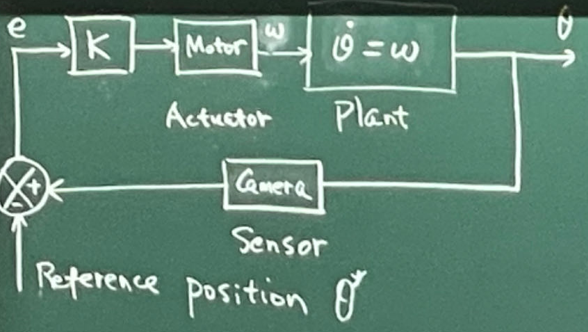 e
K
Motor
ω
θ̇ = ω
θ
Actuator
Plant
Camera
Sensor
+
-
Reference position θ*